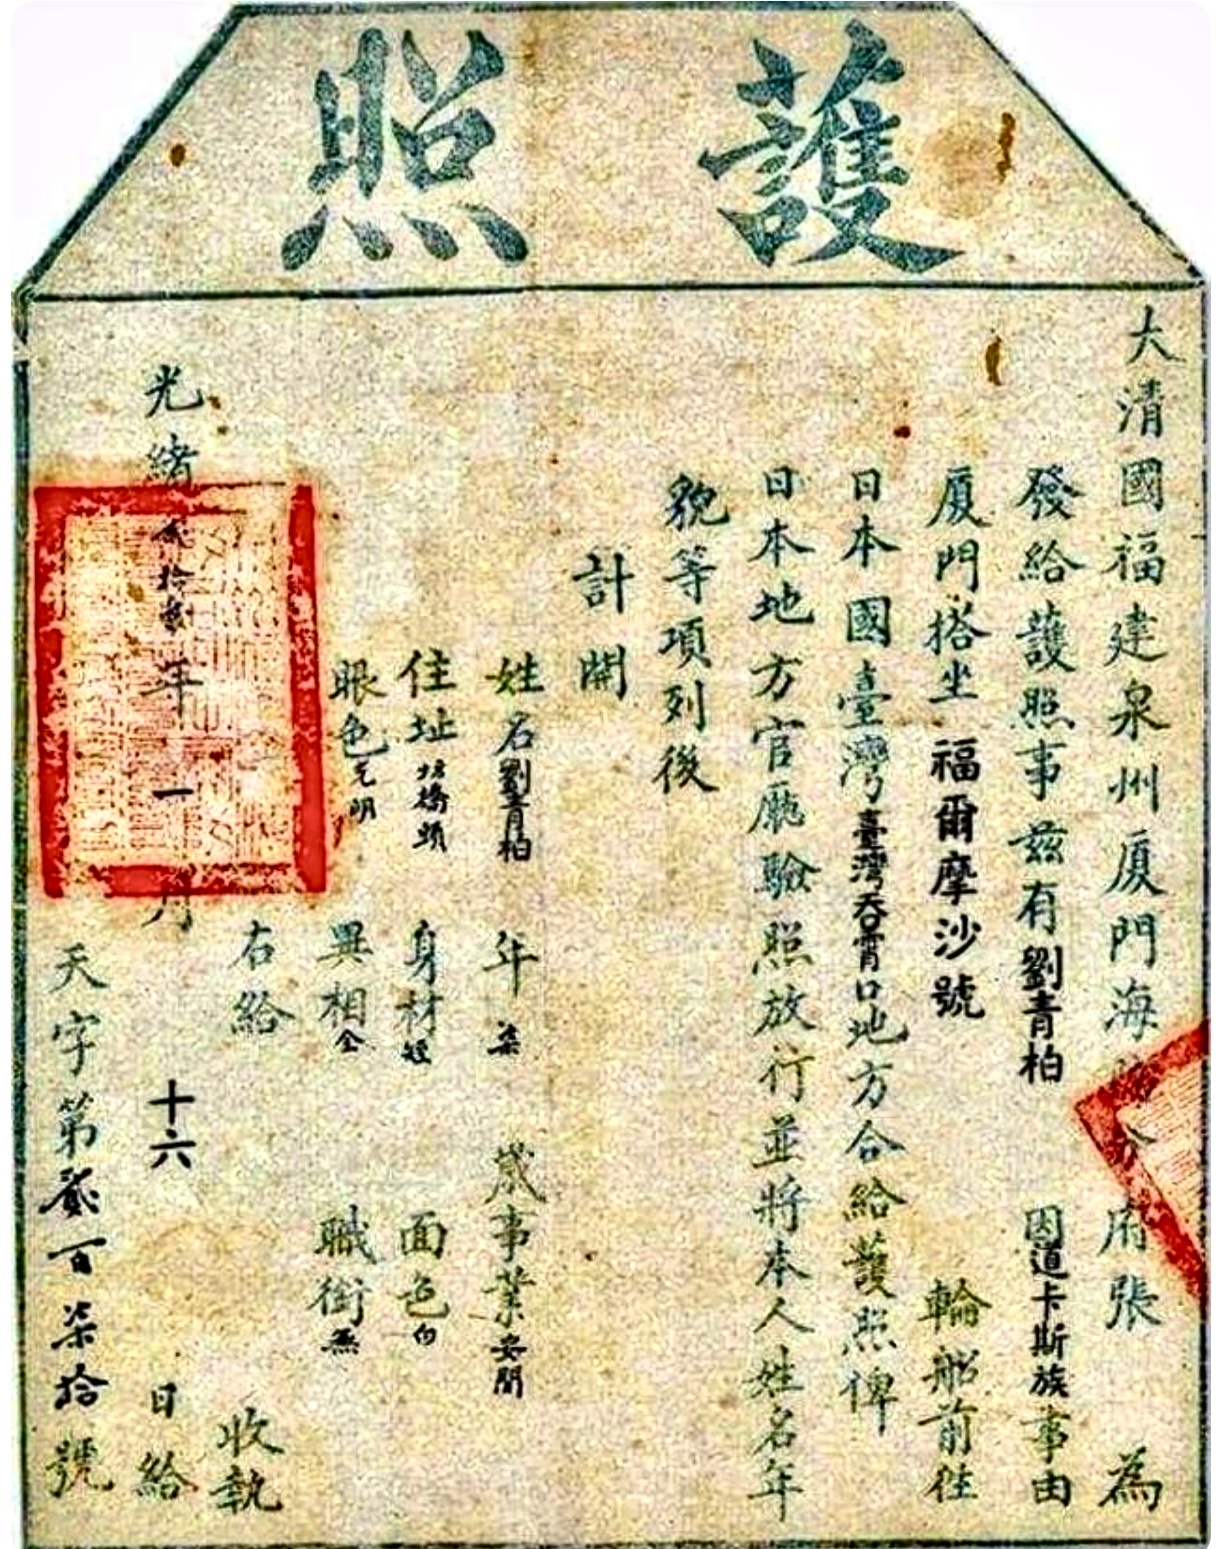 護照
大清國福建泉州厦門海 府張 為
發給護照事兹有劉青柏 因道卡斯族事由
厦門搭坐福爾摩沙號 輪船前往
日本國臺灣臺灣吞霄口地方合給護照俾
日本地方官廳驗照放行並將本人姓名年
貌等項列後
計開
姓名劉青柏 年 柒 歲事業安閒
住址 橋頭 身材短 面色白
眼色光明 異相全 職銜無
右給 收執
光緒貳拾貳年一月 十六 日給
天字第貳百柒拾號